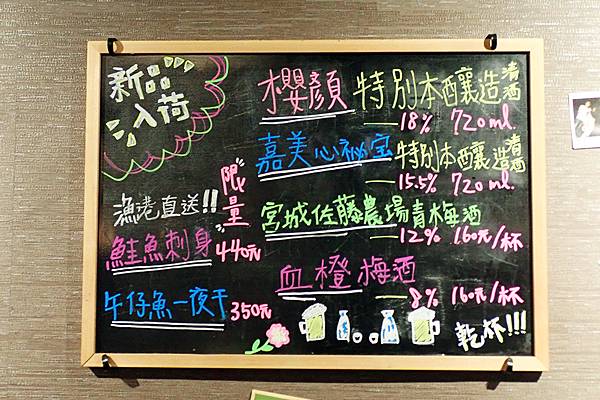 新品
入荷
漁港直送!!
限量
鮭魚刺身 440元
午仔魚一夜干 350元
櫻顏 特別本釀造清酒
18% 720ml.
嘉美心祕宝 特別本釀造清酒
15.5% 720ml.
宮城佐藤農場青梅酒
12% 160元/杯
血橙梅酒
8% 160元/杯
乾杯!!!